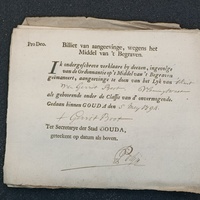 Pro Deo.
Billiet van aangeevinge, wegens het
Middel van 't Begraven.
Ik ondergeschreven verklaare by deezen, ingevolge
van de Ordonnantie op 't Middel van 't Begraven
geëmaneert, aangeevinge te doen van het Lyk van
Gerrit
als gehoorende onder de Classis van d' onvermogende.
Gedaan binnen GOUDA den 5
Gerrit
Ter Secretarye der Stad GOUDA,
geteekent op datum als boven.